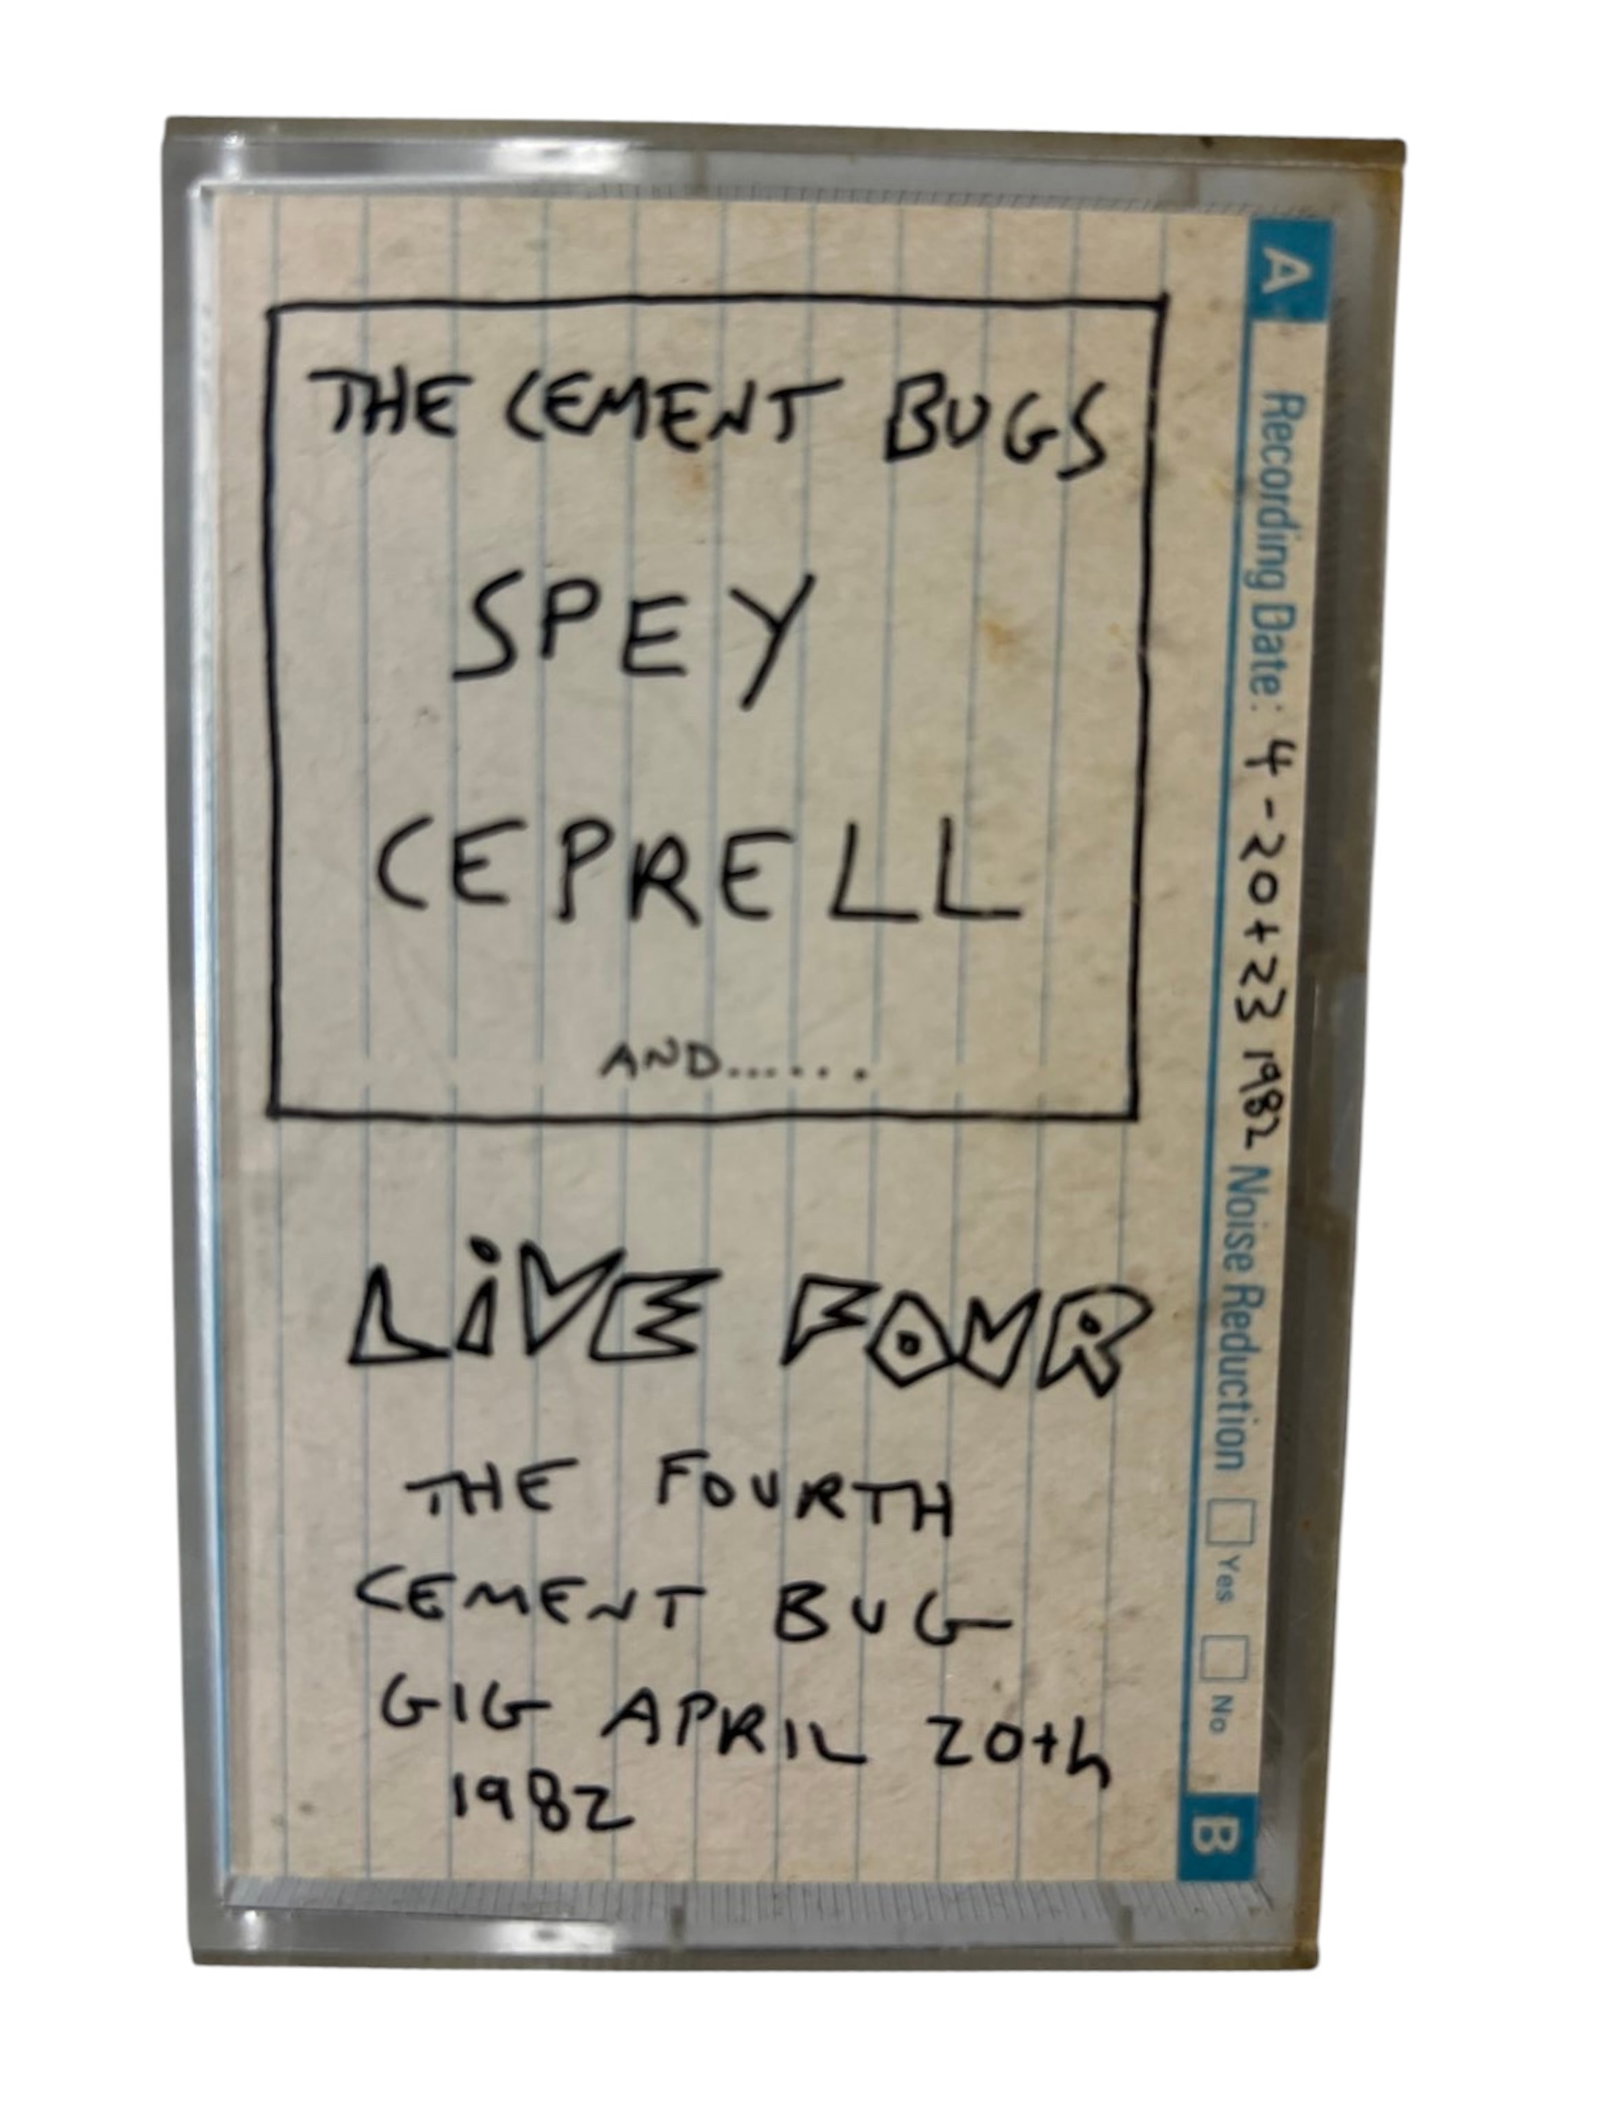 THE CEMENT BUGS
SPEY
CEPRELL
AND......
LiVE FOUR
THE FOURTH
CEMENT BUG
GIG APRIL 20th
1982
A Recording Date: 4-20+23 1982 Noise Reduction Yes No B